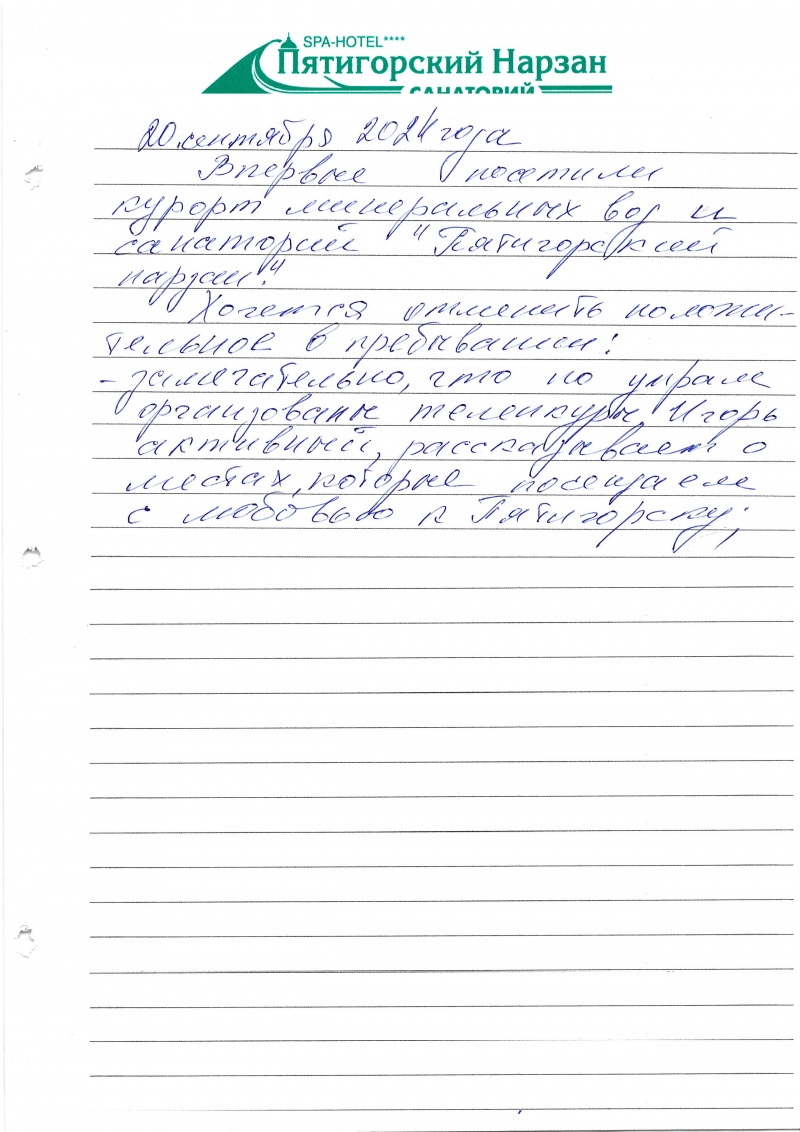 SPA-HOTEL****
Пятигорский Нарзан
САНАТОРИЙ
20 сентября 2024 года
Впервые посетили
курорт минеральных вод и
санаторий "Пятигорский
нарзан".
Хочется отметить положи-
тельное в пребывании:
- замечательно, что по утрам
организованы теренкуры Игорь
активный, рассказывает о
местах, которые посещаем
с любовью к Пятигорску;